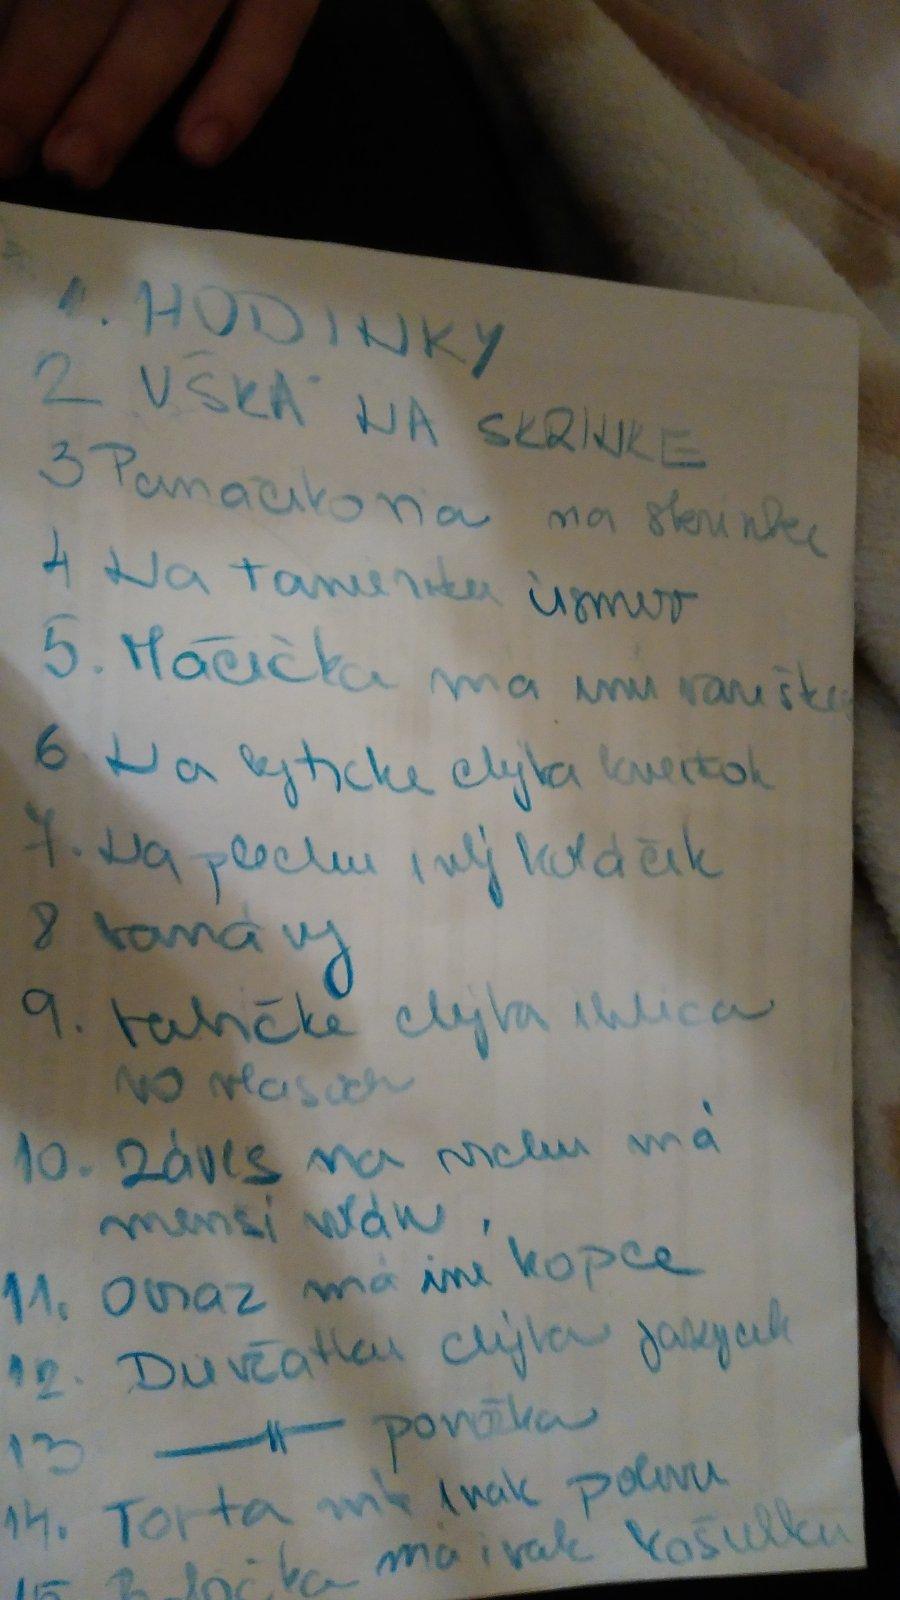 1. HODINKY
2 UŠKÁ NA SKRINKE
3 na skrinke
4 Na tanieriku úsmev
5. Mačička má inú
6 Na kytičke chýba kvietok
7. Na plechu iný koláčik
8
9. chýba ihlica
vo vlasoch
10. Záves na vrchu má
menší volán,
11. Obraz má iné kopce
12. Dievčatku chýba jazyk
13 —〃— ponožka
14. Torta má inak polevu
15 má inak košieľku